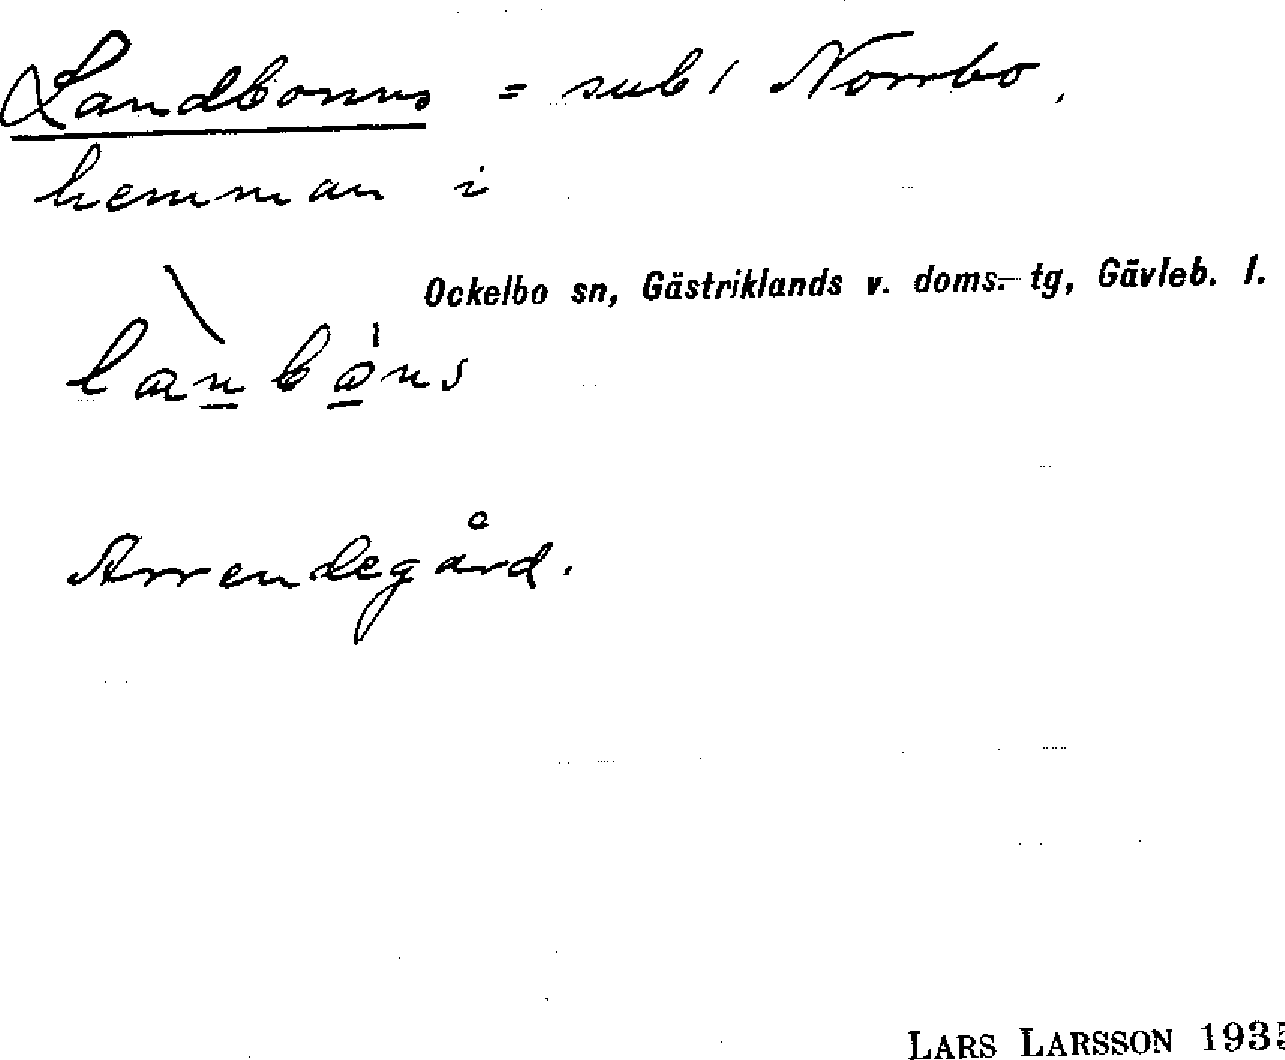 Landbonus = sub 1 Norrbo.
hemman i
Ockelbo sn, Gästriklands v. doms.-tg, Gävleb. l.
lanbons
Arrendegård.
LARS LARSSON 1935